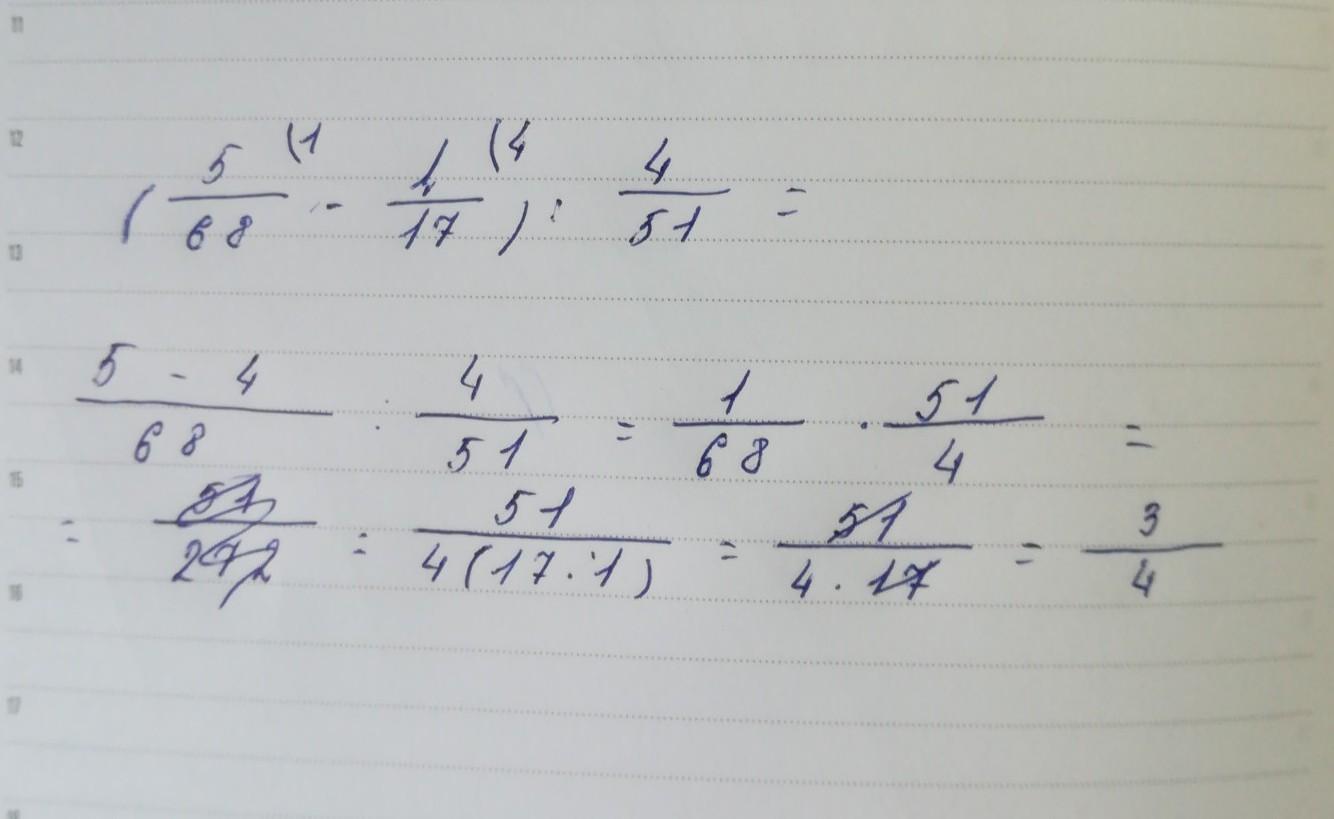 11
12
( 5/68 (1 - 1/17 (4 ) : 4/51 =
13
14
5 - 4 / 68 : 4/51 = 1/68 · 51/4 =
15
= 51/272 = 51 / 4(17·1) = 51 / 4·17 = 3/4
16
17